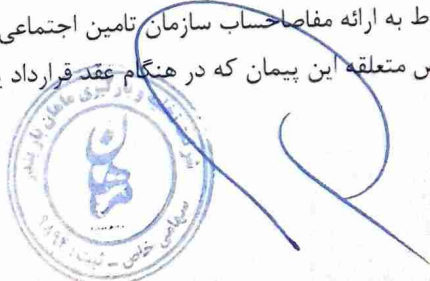 ط به ارائه مفاصاحساب سازمان تامین اجتماعی
متعلقه این پیمان که در هنگام عقد قرارداد
و بارگیری ماهان بار بندر
سهامی خاص - ثبت: